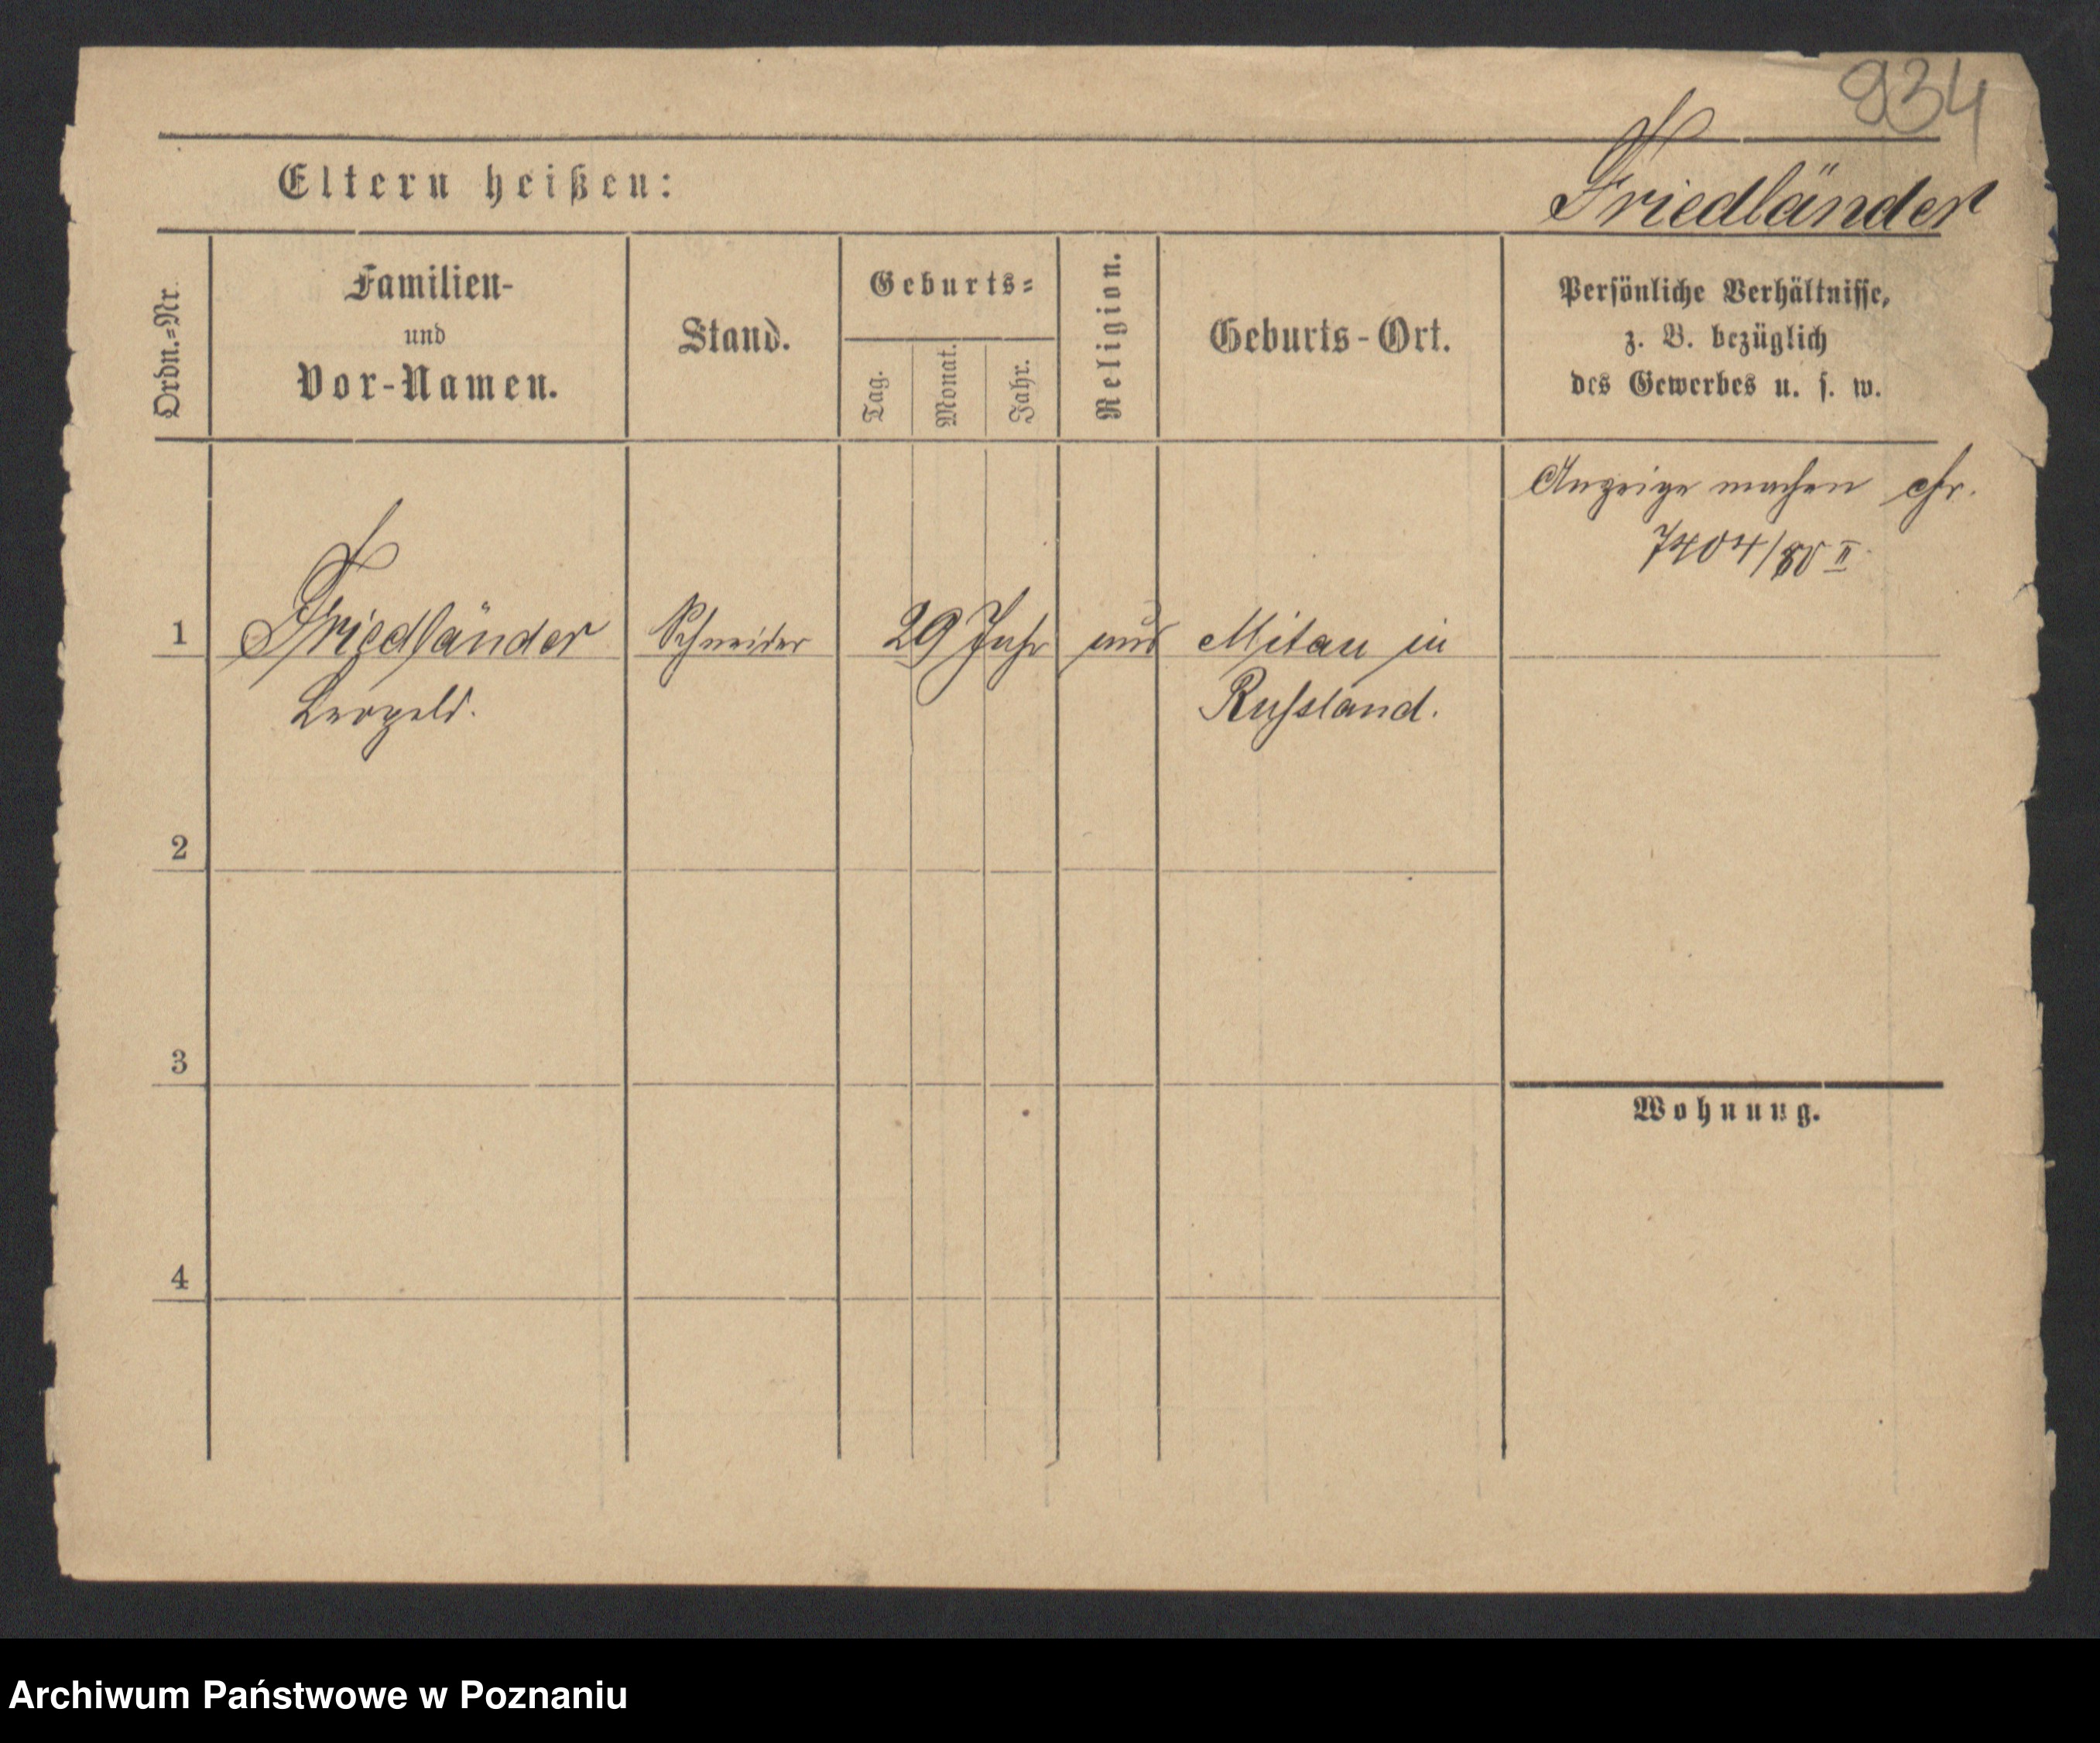 934
Eltern heißen:
Friedländer
Ordn.=Nr.
Familien-
und
Vor-Namen.
Stand.
Geburts=
Tag.
Monat.
Jahr.
Religion.
Geburts-Ort.
Persönliche Verhältnisse,
z. B. bezüglich
des Gewerbes u. s. w.
Anzeige machen cfr.
7404/80 II
1 Friedländer Schneider 29 Jahr aus Mitau in
Leopold. Russland.
2
3
Wohnung.
4
Archiwum Państwowe w Poznaniu